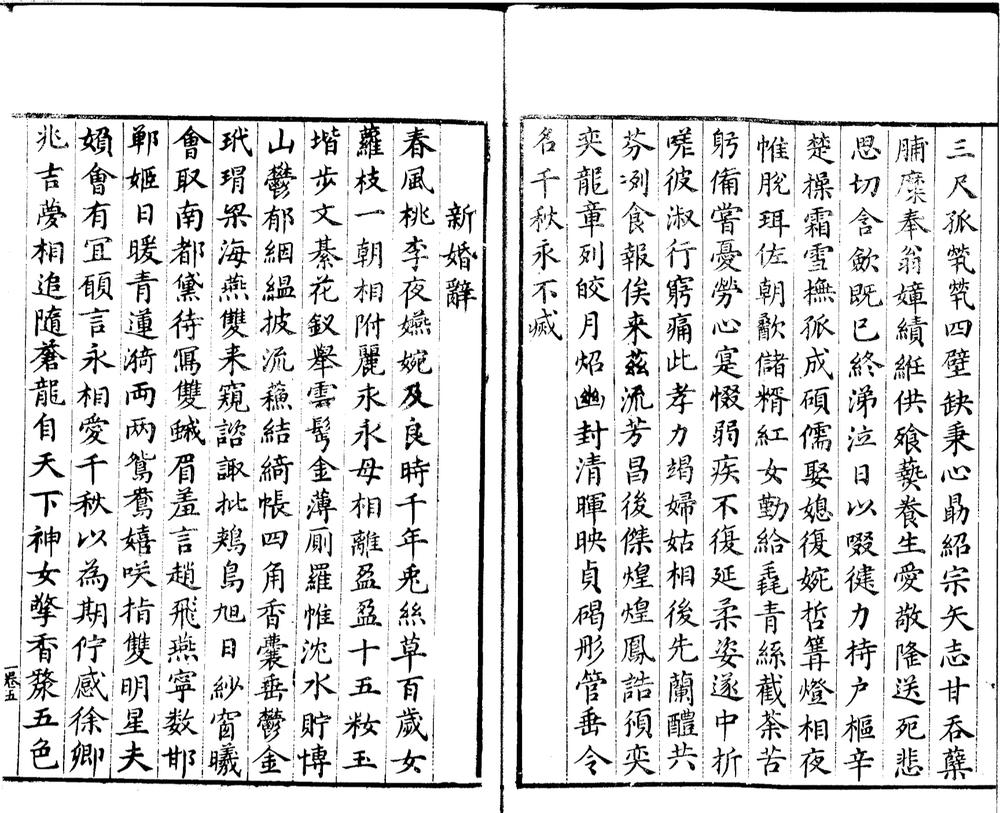 三尺孤煢煢四壁缺秉心勗紹宗矢志甘吞蘗
脯糜奉翁嫜績紝供飱爇養生愛敬隆送死悲
思切含歛既已終涕泣日以啜健力持户樞辛
楚操霜雪撫孤成碩儒娶媳復婉哲篝燈相夜
帷脫珥佐朝歠儲糈紅女勤給毳青絲截荼苦
躬備嘗憂勞心寔惙弱疾不復延柔姿遂中折
嗟彼淑行窮痛此孝力竭婦姑相後先蘭醴共
芬冽食報俟来茲流芳昌後傑煌煌鳳誥須奕
奕龍章列皎月炤幽封清暉映貞碣彤管垂令
名千秋永不滅
新婚辭
春風桃李夜嬿婉及良時千年兎絲草百歲女
蘿枝一朝相附麗永永毋相離盈盈十五籹玉
堦步文綦花釵舉雲髩金薄厠羅帷沈水貯博
山鬱郁絪緼披流蘓結綺帳四角香囊垂鬱金
玳瑁梁海燕雙来窺諮諏批鵊鳥旭日紗窗曦
會取南都黛待寫雙蛾眉羞言趙飛燕寧数邯
鄲姬日暖青蓮漪両两鴛鴦嬉咲指雙明星夫
婦會有冝願言永相愛千秋以為期佇感徐卿
兆吉夢相追隨蒼龍自天下神女擎香槃五色
卷五